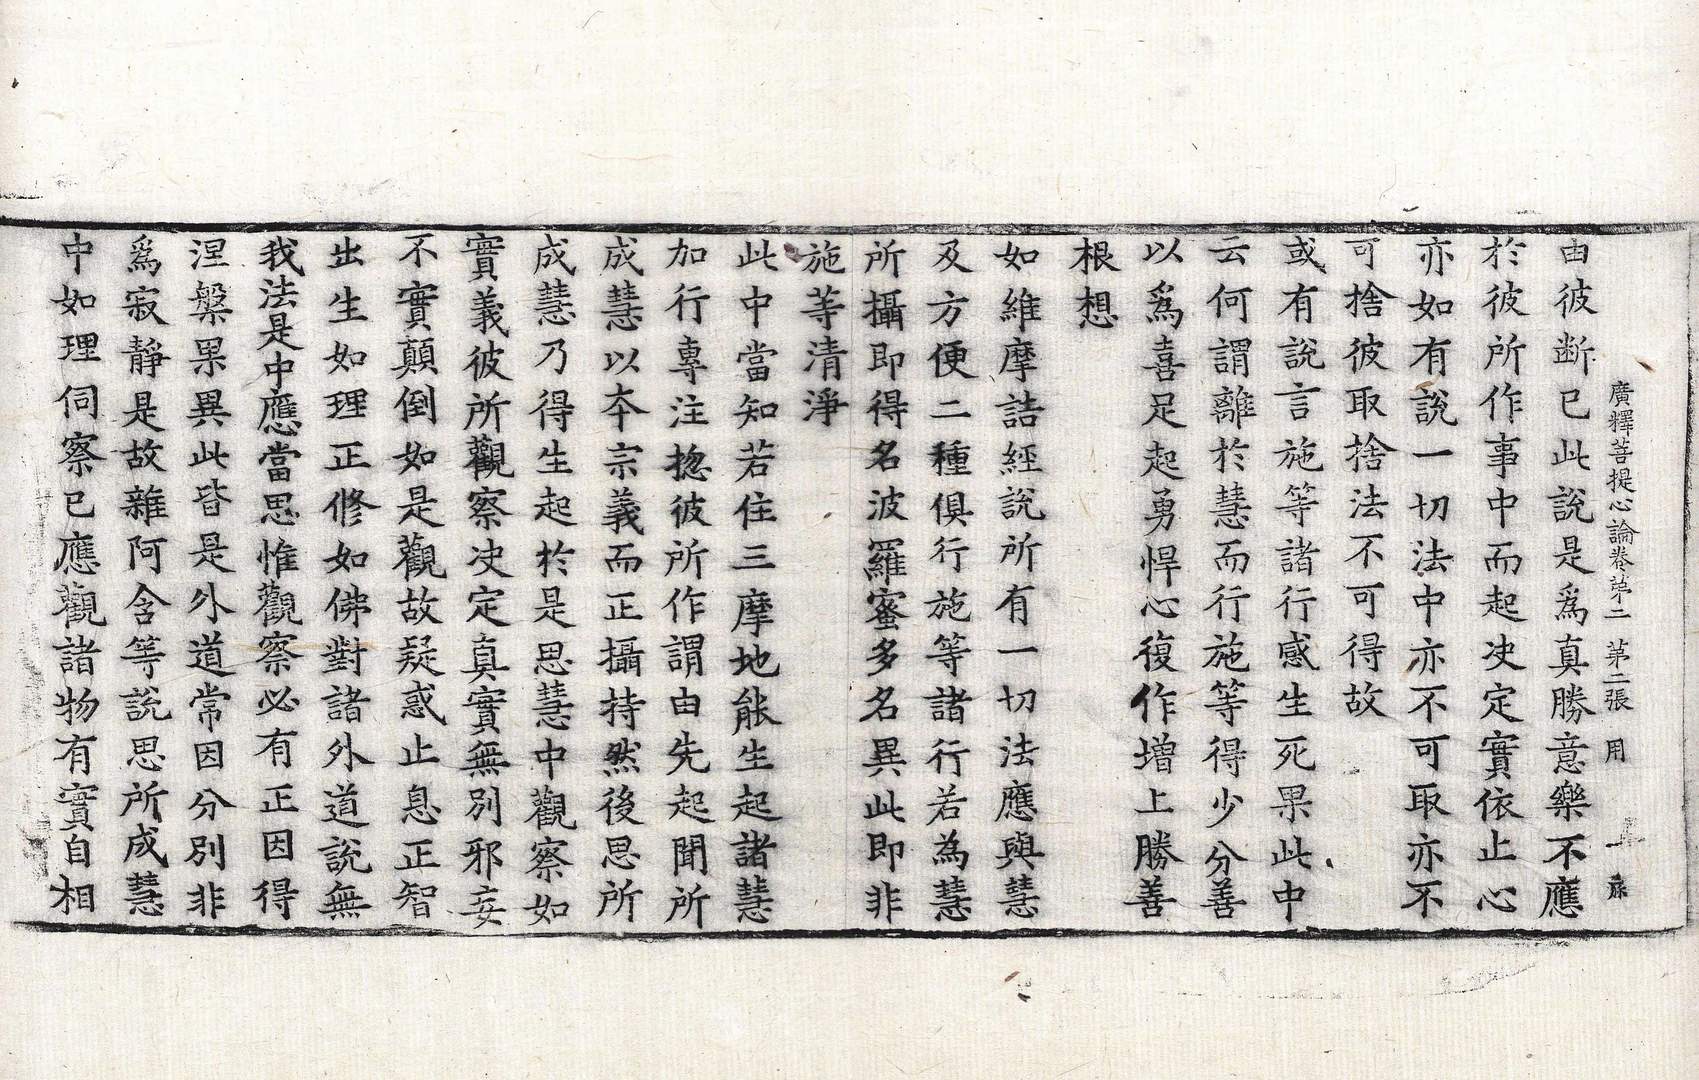 廣釋菩提心論卷第二　第二張　用
由彼斷已此說是爲真勝意樂不應
於彼所作事中而起決定實依止心
亦如有說一切法中亦不可取亦不
可捨彼取捨法不可得故
或有說言施等諸行感生死果此中
云何謂離於慧而行施等得少分善
以爲喜足起勇悍心復作增上勝善
根想
如維摩詰經說所有一切法應與慧
及方便二種俱行施等諸行若為慧
所攝即得名波羅蜜多名異此即非
施等清淨
此中當知若住三摩地能生起諸慧
加行專注揔彼所作謂由先起聞所
成慧以本宗義而正攝持然後思所
成慧乃得生起於是思慧中觀察如
實義彼所觀察決定真實無別邪妄
不實顛倒如是觀故疑惑止息正智
出生如理正修如佛對諸外道說無
我法是中應當思惟觀察必有正因得
涅槃果異此皆是外道常因分別非
爲寂靜是故雜阿含等說思所成慧
中如理伺察已應觀諸物有實自相